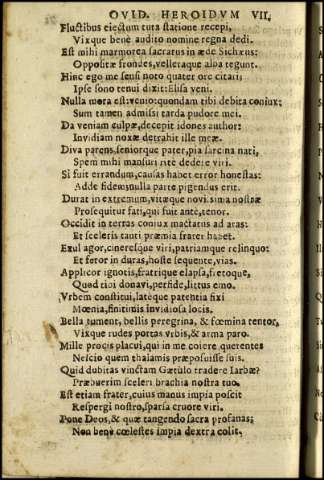 OVID. HEROIDVM VII.
Fluctibus eiectum tuta statione recepi,
Vixque benè audito nomine regna dedi.
Est mihi marmorea sacratus in æde Sichæus:
Oppositæ frondes, velleraque alba tegunt.
Hinc ego me sensi noto quater ore citari:
Ipse sono tenui dixit: Elisa veni.
Nulla mora est: venio: quondam tibi debita coniux:
Sum tamen admissi tarda pudore mei.
Da veniam culpæ, decepit idones author:
Invidiam noxæ detrahit ille meæ.
Diva parens, seniorque pater, pia sarcina nati,
Spem mihi mansuri ritè dedere viri.
Si fuit errandum, causas habet error honestas:
Adde fidem: nulla parte pigendus erit.
Durat in extremum, vitæque novissima nostræ
Prosequitur fati, qui fuit ante, tenor.
Occidit in terras coniux mactatus ad aras:
Et sceleris tanti præmia frater habet.
Exul agor, cineresque viri, patriamque relinquo:
Et feror in duras, hoste sequente, vias.
Applicor ignotis, fratrique elapsa, fretoque,
Quod tibi donavi, perfide, littus emo.
Vrbem constitui, latèque patentia fixi
Mœnia, finitimis invidiosa locis.
Bella tument, bellis peregrina, & fœmina tentor,
Vixque rudes portas vrbis, & arma paro.
Mille procis placui, qui in me coiere querentes
Nescio quem thalamis præposuisse suis.
Quid dubitas vinctam Gætulo tradere Iarbæ?
Præbuerim sceleri brachia nostra tuo.
Est etiam frater, cuius manus impia poscit
Respergi nostro, sparsa cruore viri.
Pone Deos, & quæ tangendo sacra profanas:
Non benè cœlestes impia dextra colit,